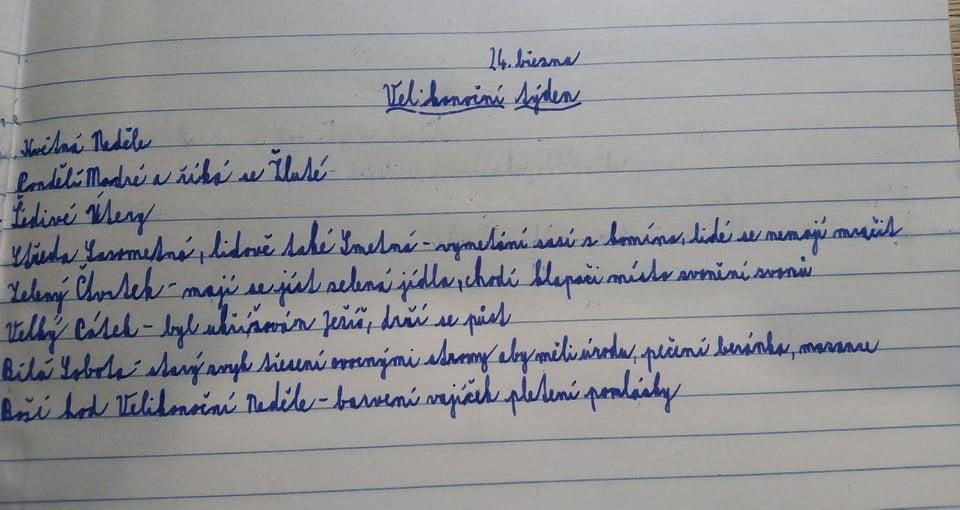 24. března
Velikonoční týden
Květná Neděle
Pondělí Modré a říká se Žluté
Šedivé Úterý
Středa Sazometná, lidově také Smetná - vymetání sazí z komína, lidé se nemají mračit
Zelený Čtvrtek - mají se jíst zelená jídla, chodí klapači místo zvonění zvonů
Velký Pátek - byl ukřižován Ježíš, drží se půst
Bílá Sobota - starý zvyk třesení ovocnými stromy aby měli úrodu, pečení beránka, mazance
Boží hod Velikonoční Neděle - barvení vajíček pletení pomlásky